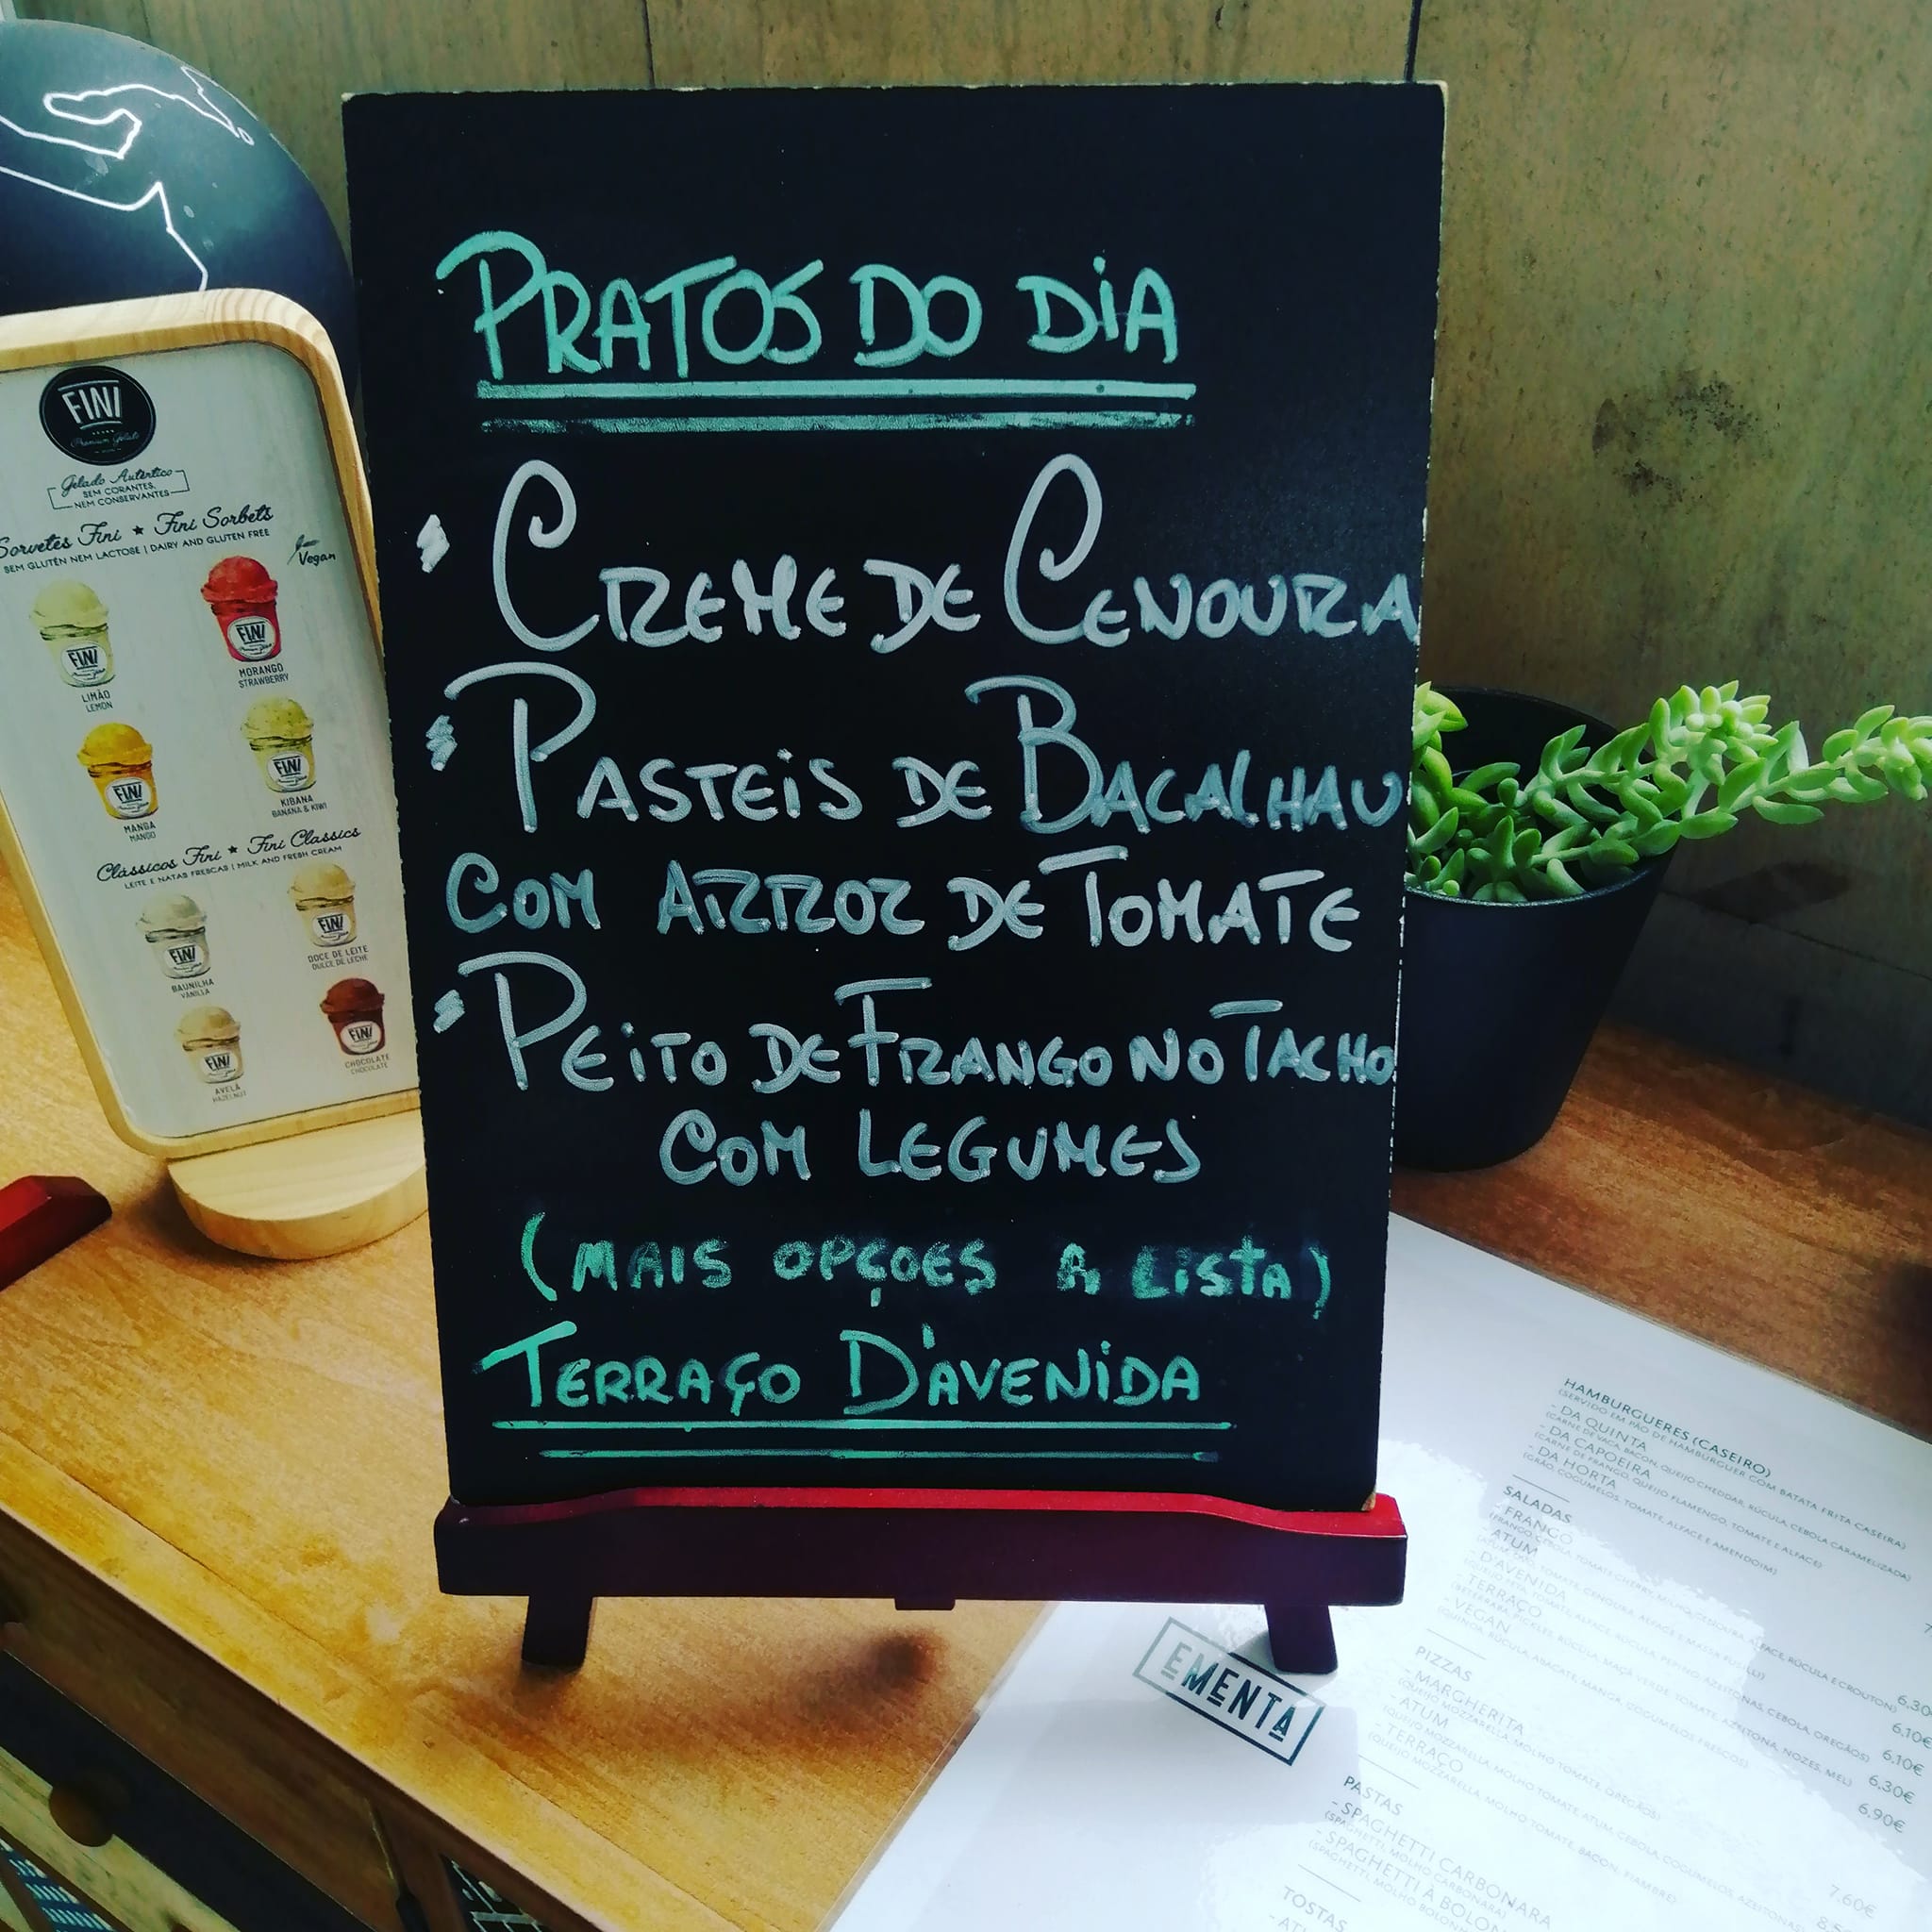 PRATOS DO DIA
CREME DE CENOURA
PASTEIS DE BACALHAU
COM ARROZ DE TOMATE
PEITO DE FRANGO NO TACHO
COM LEGUMES
(MAIS OPÇOES A LISTA)
TERRAÇO D'AVENIDA
FINI
Premium Gelato
Gelado Autêntico
SEM CORANTES,
NEM CONSERVANTES
Sorvetes Fini ★ Fini Sorbets
SEM GLUTÉN NEM LACTOSE | DAIRY AND GLUTEN FREE
Vegan
FINI
FINI
LIMÃO
LEMON
MORANGO
STRAWBERRY
FINI
FINI
MANGA
MANGO
KIBANA
BANANA & KIWI
Clássicos Fini ★ Fini Classics
LEITE E NATAS FRESCAS | MILK AND FRESH CREAM
FINI
FINI
BAUNILHA
VANILLA
DOCE DE LEITE
DULCE DE LECHE
FINI
FINI
AVELÃ
HAZELNUT
CHOCOLATE
CHOCOLATE
EMENTA
HAMBURGUERES (CASEIRO)
(SERVIDO EM PÃO DE HAMBURGUER COM BATATA FRITA CASEIRA)
- DA QUINTA
(CARNE DE VACA, BACON, QUEIJO CHEDDAR, RÚCULA, CEBOLA CARAMELIZADA)
- DA CAPOEIRA
(CARNE DE FRANGO, QUEIJO FLAMENGO, TOMATE E ALFACE)
- DA HORTA
(GRÃO, COGUMELOS, TOMATE, ALFACE E AMENDOIM)
SALADAS
- FRANGO
- ATUM
- D'AVENIDA
- TERRAÇO
- VEGAN
6,30
6,10€
6,10€
6,30€
6,90€
PIZZAS
- MARGHERITA
(QUEIJO MOZZARELLA, MOLHO TOMATE, OREGÃOS)
- ATUM
(QUEIJO MOZZARELLA, MOLHO TOMATE, ATUM, CEBOLA, COGUMELOS, AZEITONAS)
- TERRAÇO
(QUEIJO MOZZARELLA, MOLHO TOMATE, BACON, FIAMBRE)
7,60€
PASTAS
- SPAGHETTI CARBONARA
(SPAGHETTI, MOLHO CARBONARA)
- SPAGHETTI À BOLON
(SPAGHETTI, MOLHO BOLON
TOSTAS